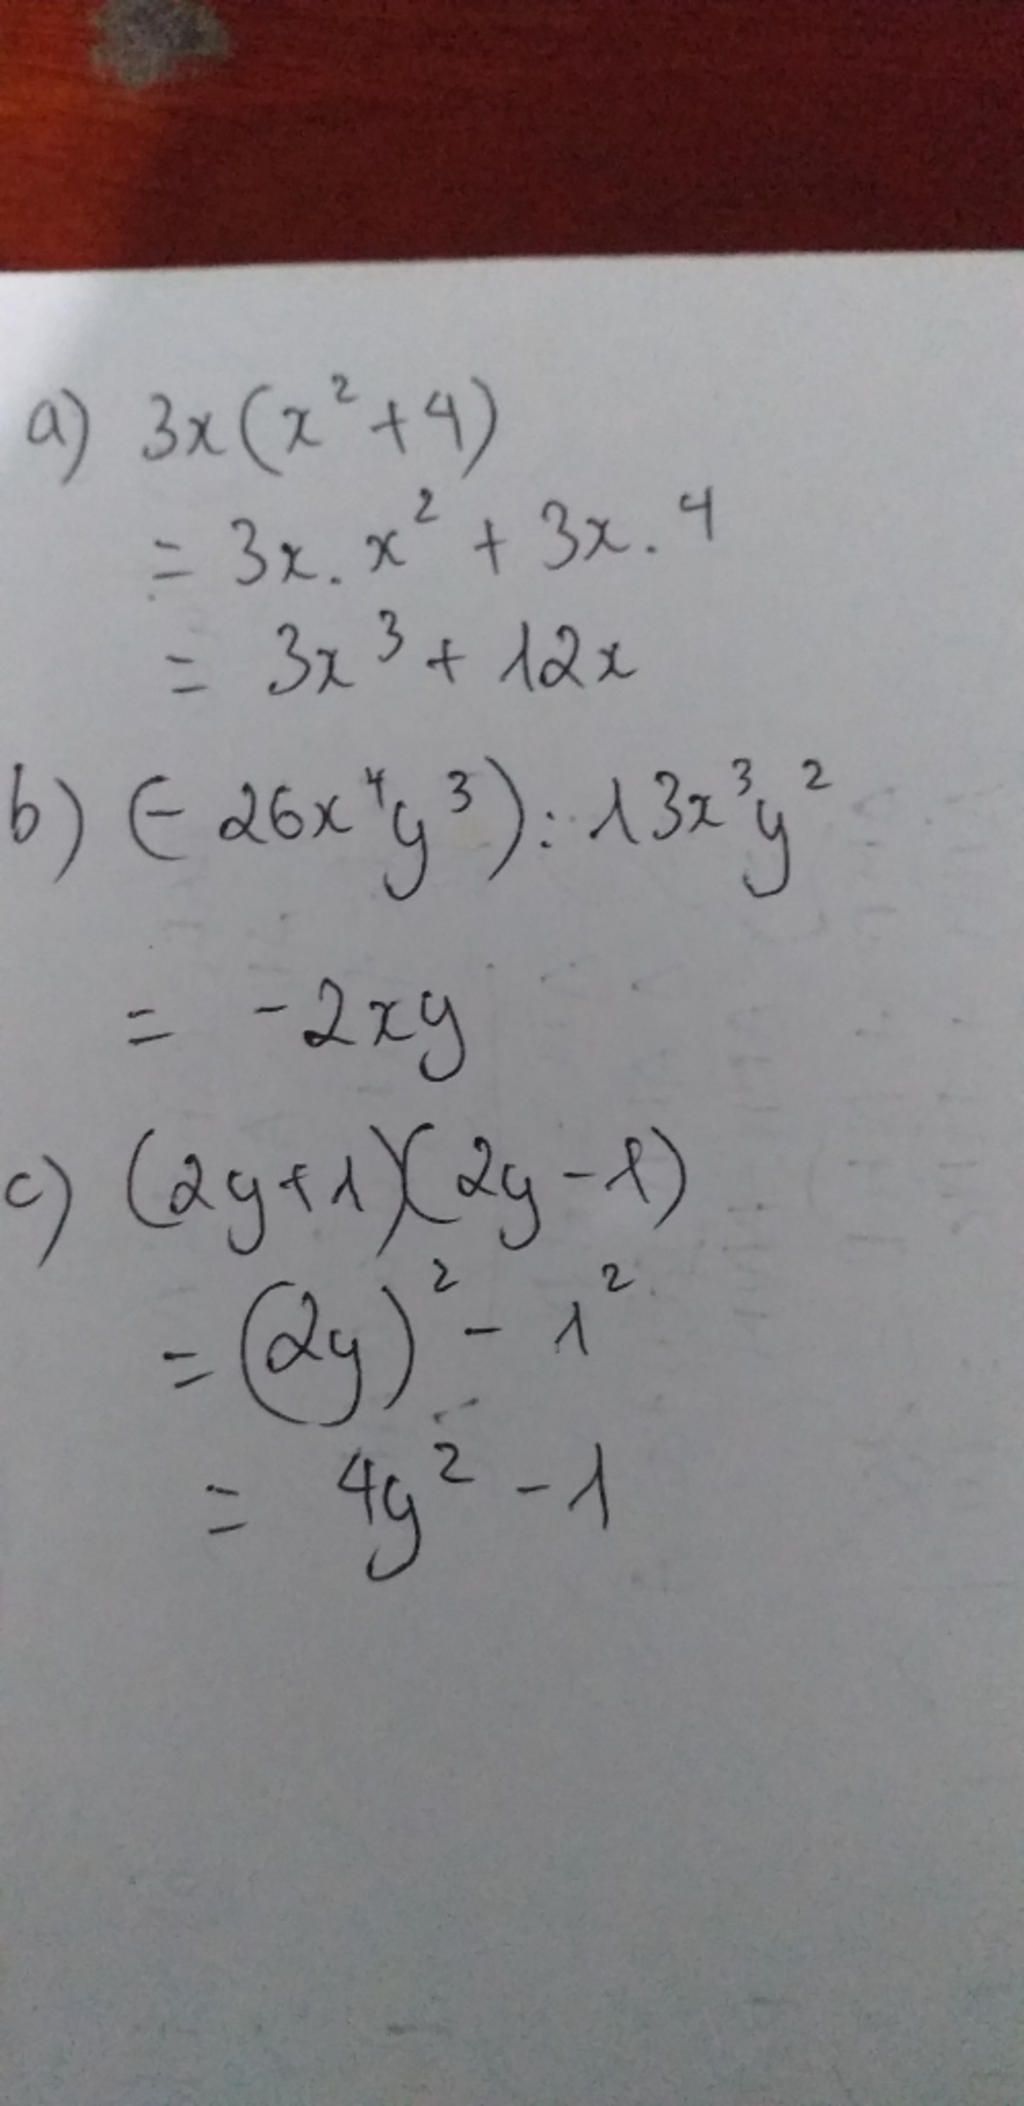 a) 3x(x²+4)
= 3x.x² + 3x.4
= 3x³ + 12x
b) (-26x⁴y³):13x³y²
= -2xy
c) (2y+1)(2y-1)
= (2y)² - 1²
= 4y² - 1